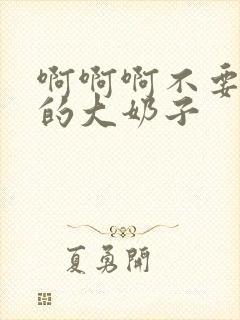 啊啊啊不要
的大奶子
夏勇開